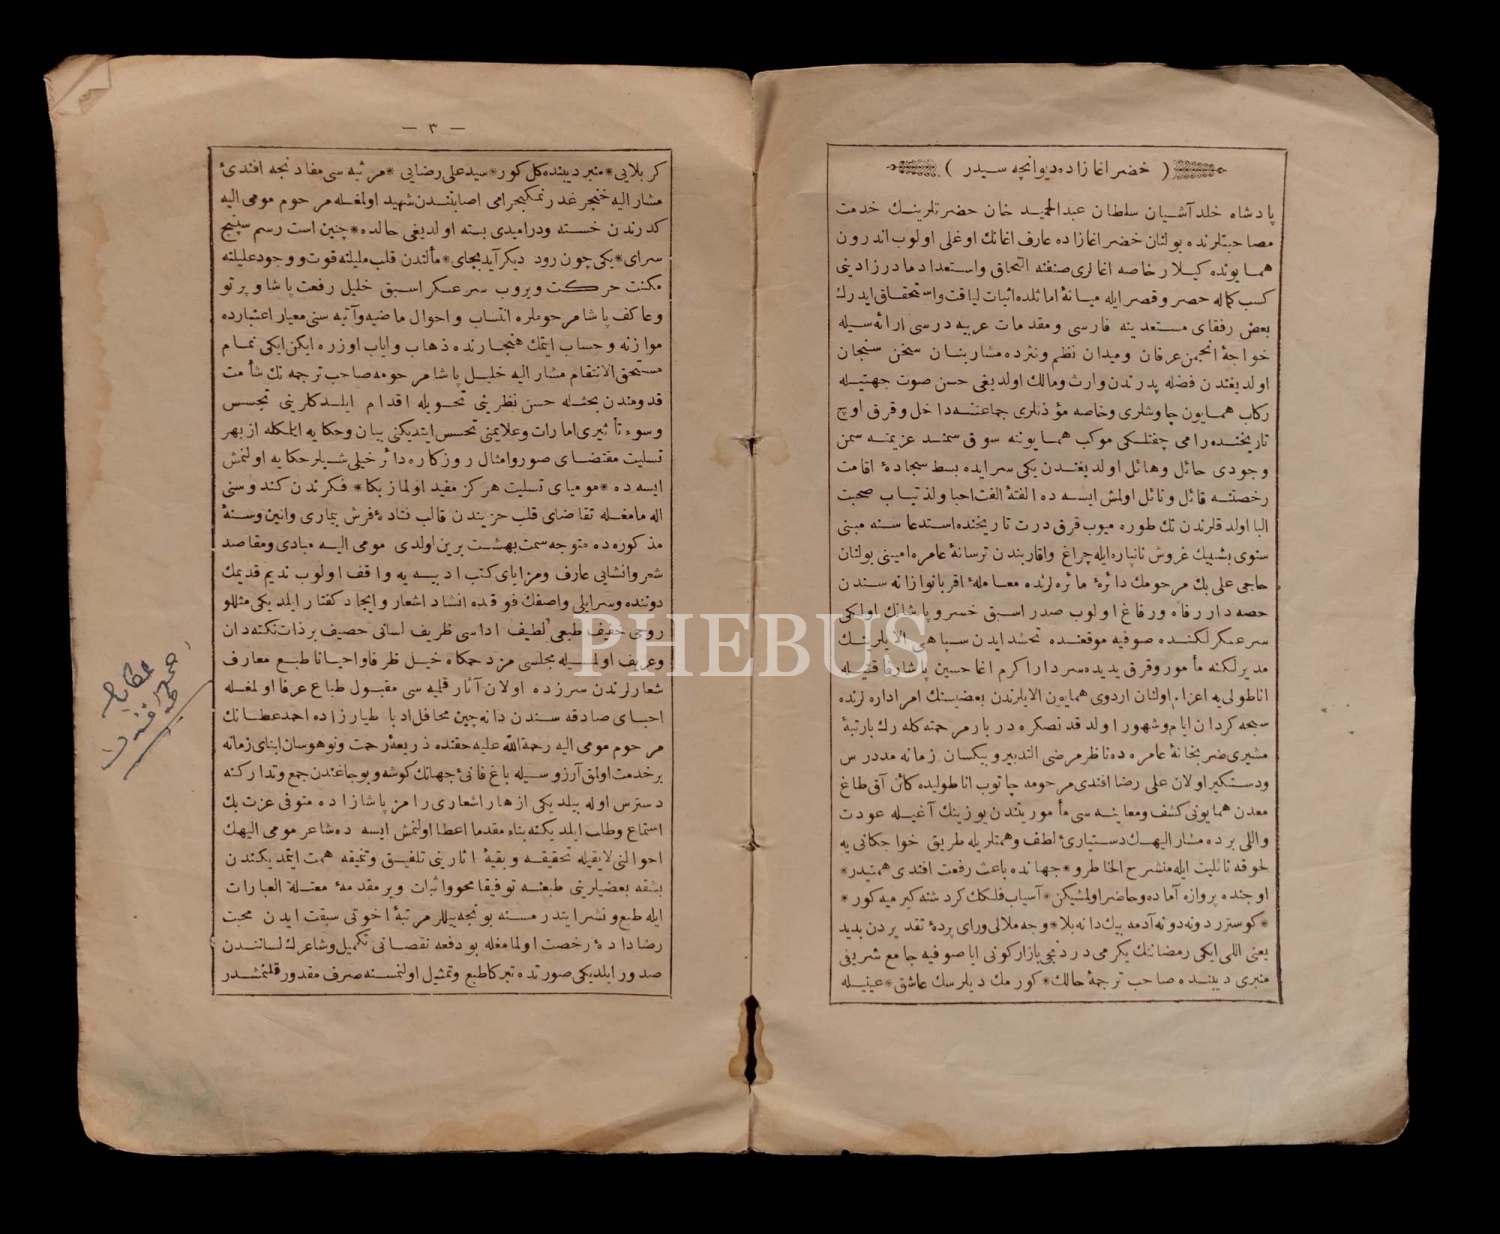 ( خضر اغا زاده ديوانچه سيدر )
پادشاه خلد آشيان سلطان عبدالحميد خان حضرتلرينك خدمت
مصاحبتلرنده بولنان خضر اغا زاده عارف اغانك اوغلى اولوب اندرون
همايونده كيلار خاصه اغالرى صنفنه التحاق واستعداد مادرزادينى
كسب كماله حصر وقصر ايله ميانهٔ اماثلده اثبات لياقت واستحقاق ايدرك
بعض رفقاى مستعدينه فارسى ومقدمات عربيه درسى ارائه سيله
خواجهٔ انجمن عرفان وميدان نظم ونثرده مشار بنان سخن سنجان
اولديغندن فضله پدرندن وارث ومالك اولديغى حسن صوت جهتيله
ركاب همايون چاوشلرى وخاصه مؤذنلرى جماعتنه داخل وقرق اوچ
تاريخنده رامى چفتلكى موكب همايوننه سوق سمند عزيمته سمن
وجودى حائل وهائل اولديغندن يكى سرايده بسط سجادهٔ اقامت
رخصتنه قائل ونائل اولمش ايسه ده الفتهٔ الفت احبا ولذتياب صحبت
البا اولدقلرندن تك طوره ميوب قرق درت تاريخنده استدعاسنه مبنى
سنوى بشبيك غروش نانپاره ايله چراغ واقاربندن ترسانهٔ عامره امينى بولنان
حاجى على بك مرحومك دائرهٔ مأثره لرنده معاملهٔ اقربانوازانه سندن
حصه دار رفاه ورفاغ اولوب صدر اسبق خسرو پاشانك اولكى
سرعسكرلكنده صوفيه موقعنده تحشد ايدن سپاهى الايلرينك
مديرلكنه مأمور وقرق يديده سردار اكرم اغا حسين پاشا رفاقتيله
اناطولى يه اعزام اولنان اردوى همايون الايلرندن بعضيسنك امر اداره لرنده
سبحه كردان ايام وشهور اولدقدنصكره دربار مرحمته كله رك بارتبهٔ
مشيرى ضربخانهٔ عامره ده ناظر مرضى التدبير وبيكسان زمانه مددرس
ودستكير اولان على رضا افندى مرحومه چاتوب اناطوليده كائن آق طاغ
معدن همايونى كشف ومعاينه سى مأموريتندن يوزينك آغيله عودت
واللى برده مشار اليهك دستيارئ لطف وهمتلريله طريق خواجكانى يه
لحوقه نائليت ايله منشرح الخاطر و*جهانده باعث رفعت افندى همتيدر*
اوجنده پروازه آماده وحاضر اولمشيكن*آسياب فلكك كردشنه كير ميه كور*
*كوستر دونه دونه آدمه بيك دانه بلا*وجه ملالى وراى پردهٔ تقديردن بديد
يعنى اللى ايكى رمضاننك يكرمى دردنجى بازار كونى اياصوفيه جامع شريفى
منبرى ديبنده صاحب ترجمهٔ حالك*كورمك ديلرسك عاشق*عينيله
— ٣ —
كربلايى*منبر ديبنده كل كور*سيد على رضايى*مرثيه سى مفادنجه افندئ
مشار اليه خنجر غدر نمكبحرامى اصابتندن شهيد اولمغله مرحوم مومى اليه
كدرندن خسته ودراميدى بسته اولديغى حالده*چنين است رسم سپنج
سراى*يكى چون رود ديكر آيد بجاى*مألندن قلب مليلنه قوت ووجود عليلنه
مكنت حركت ويروب سرعسكر اسبق خليل رفعت پاشا و پرتو
وعاكف پاشا مرحوملره انتساب واحوال ماضيه وآتيه سنى معيار اعتبارده
موازنه وحساب ايتمك هنجارنده ذهاب واياب اوزره ايكن ايكى تمام
مستحق الانتقام مشار اليه خليل پاشا مرحومه صاحب ترجمه نك شأمت
قدومندن بحثله حسن نظرينى تحويله اقدام ايلدكلرينى تجسس
وسوء تأثيرى امارات وعلايمنى تحسس ايتديكنى بيان وحكايه ايتملكله از بهر
تسليت مقتضاى صور وامثال روزكاره دائر خيلى شيلر حكايه اولنمش
ايسه ده*موميا ى تسليت هركز مفيد اولماز بكا*فكرندن كندوسنى
اله مامغله تقاضاى قلب حزيندن قالب فتادهٔ فرش بيمارى وانين وسنهٔ
مذكوره ده متوجه سمت بهشت برين اولدى مومى اليه مبادى ومقاصد
شعر وانشايى عارف ومزاياى كتب ادبيه يه واقف اولوب نديم قديمك
دوننده وسرايلى واصفك فوقنده انشاد اشعار وايجاد كفتار ايلديكى مثللو
روحى خفيف طبعى لطيف اداسى ظريف لسانى حصيف بر ذات نكته دان
وعريف اولمسيله مجلسى مزدحمكاه خيل ظرفا واحيانا طبع معارف
شعارلرندن سرزده اولان آثار قلميه سى مقبول طباع عرفا اولمغله
احباى صادقه سندن دانه چين محافل ادبا طيار زاده احمد عطانك
مرحوم مومى اليه رحمة الله عليه حقنده ذريعهٔ رحمت ونوهوسان ابناى زمانه
بر خدمت اولمق آرزوسيله باغ فانئ جهانك كوشه وبوجاغندن جمع وتداركنه
دسترس اوله بيلديكى ازهار اشعارى رامز پاشا زاده متوفى عزت بك
استماع وطلب ايلديكنه بناء مقدما اعطا اولنمش ايسه ده شاعر مومى اليهك
احوالنى لايقيله تحقيقه وبقيهٔ اثارينى تلفيق وتنميقه همت ايتمديكندن
بشقه بعضيلرينى طبعنه توفيقا محو واثبات وبر مقدمهٔ معتلة العبارات
ايله طبع ونشر ايتدرمسنه بونجه ييللر مرتبهٔ اخوتى سبقت ايدن محبت
رضاداده رخصت اولمامغله بودفعه نقصانى تكميل وشاعرك لساننندن
صدور ايلديكى صورتده تبركا طبع وتمثيل اولنمسنه صرف مقدور قلنمشدر